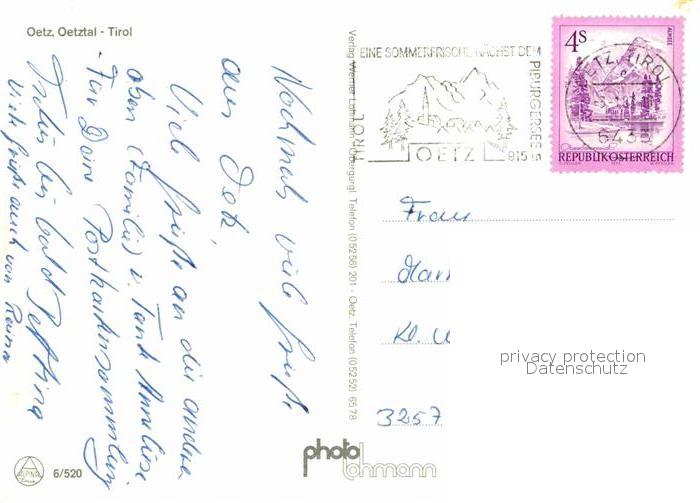 Oetz, Oetztal - Tirol
Nochmals viele Grüße
aus Oetz,
Viele Grüße an die andern
oben (Familie) u. Tante Anneliese.
Für Deine Postkartensammlung
Tschüs bis bald
Viele Grüße auch von
6/520
ALPINA
Verlag Werner Lohmann, Obergurgl, Telefon (05256) 201 - Oetz, Telefon (05252) 6578
EINE SOMMERFRISCHE NÄCHST DEM
PIBURGERSEE
TIROL
OETZ
915 m
4S
ALMSEE
REPUBLIK ÖSTERREICH
OETZ, TIROL
6433
Frau
Mari
Kl. U
3257
privacy protection
Datenschutz
photo
lohmann